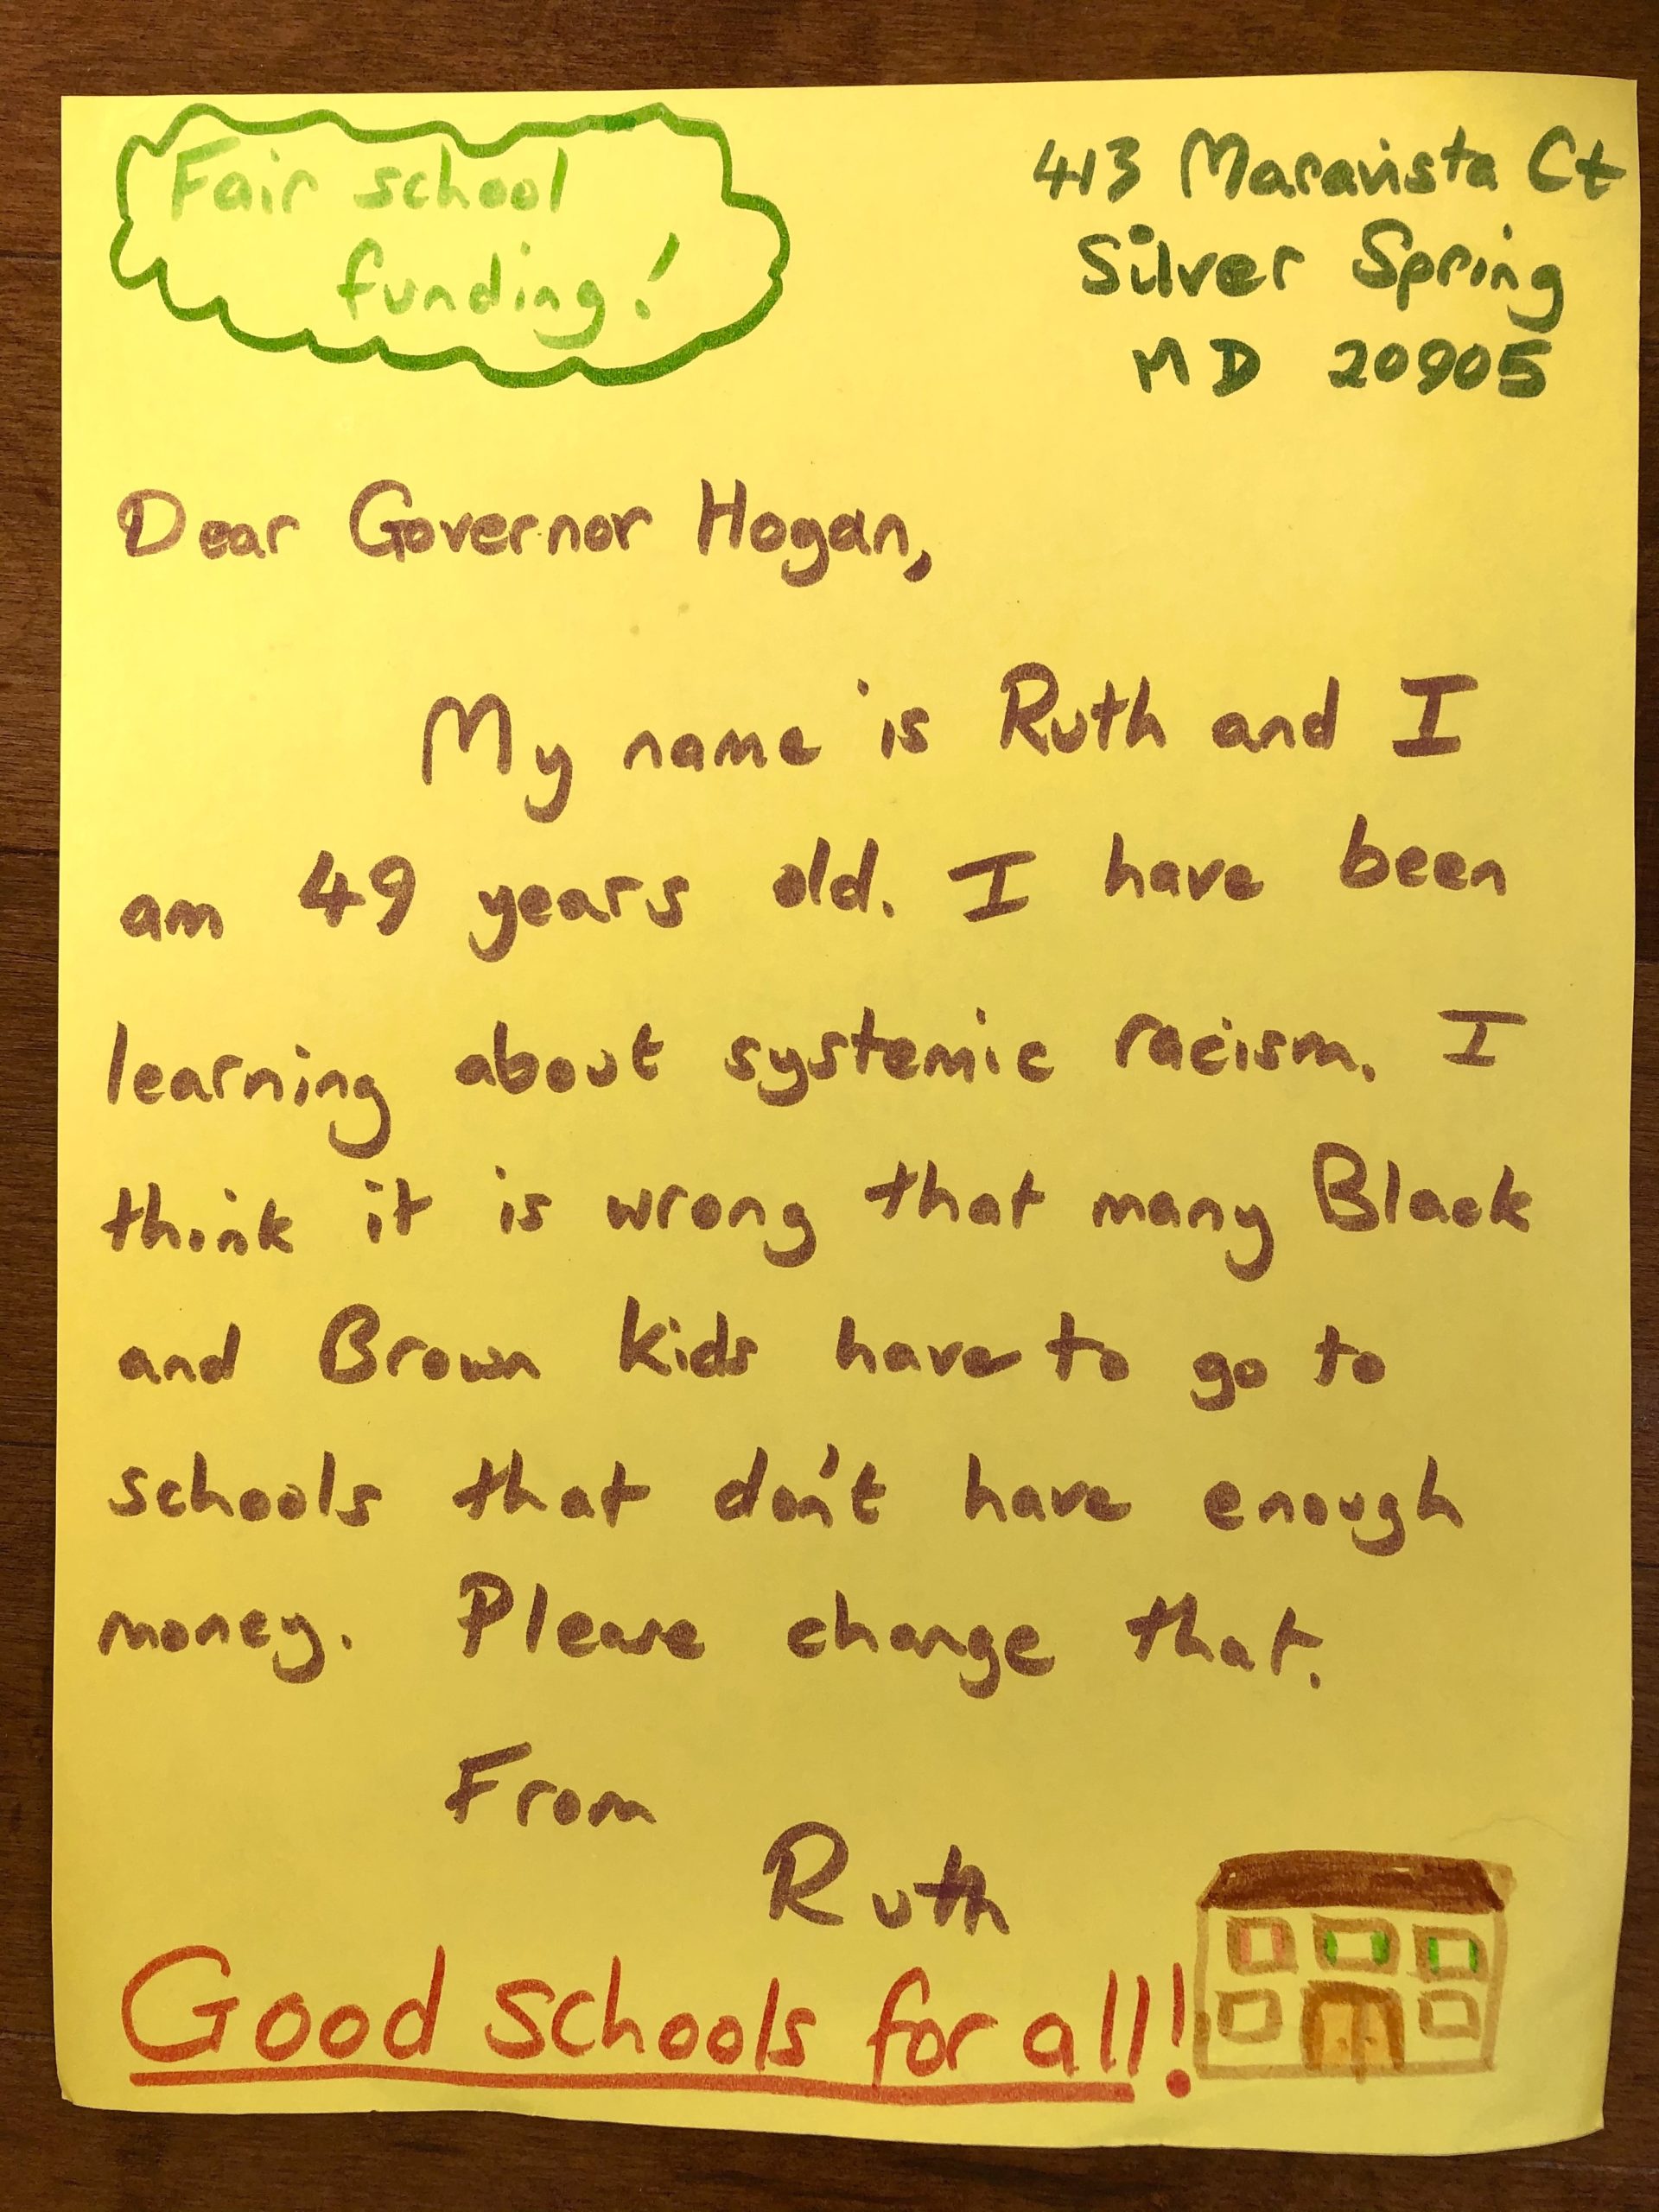 Fair school
funding!
413 Maravista Ct
Silver Spring
MD 20905
Dear Governor Hogan,
My name is Ruth and I
am 49 years old. I have been
learning about systemic racism. I
think it is wrong that many Black
and Brown kids have to go to
schools that don't have enough
money. Please change that.
From
Ruth
Good schools for all!